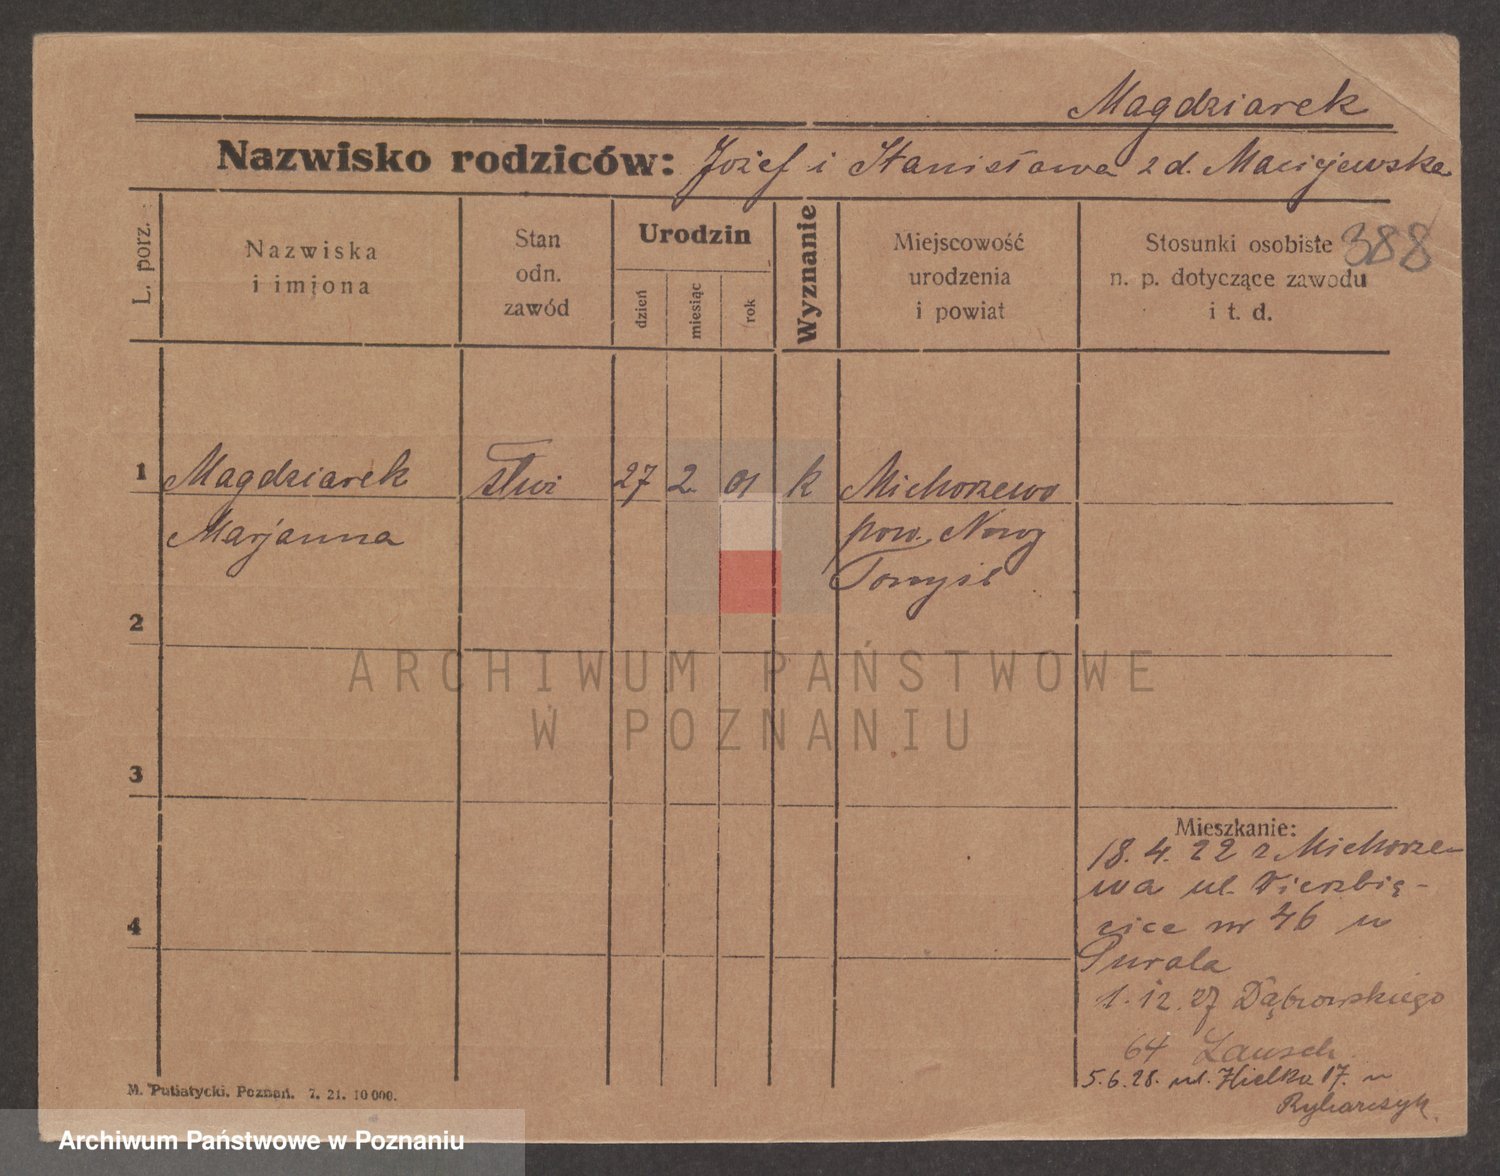 Magdziarek
Nazwisko rodziców: Józef i Stanisława z d. Maciejewska
L. porz.
Nazwiska
i imiona
Stan
odn.
zawód
Urodzin
dzień
miesiąc
rok
Wyznanie
Miejscowość
urodzenia
i powiat
Stosunki osobiste
n. p. dotyczące zawodu
i t. d.
388
1 Magdziarek 27 2 01 k Michorzewo
Marjanna pow. Nowy
Tomyśl
2
ARCHIWUM PAŃSTWOWE
W POZNANIU
3
Mieszkanie:
18. 4. 22 z Michorze-
wa ul. Wierzbię-
cice nr 46 u
Purala
4
1. 12. 27 Dąbrowskiego
64 Lausch.
5. 6. 28. ul. Wielka 17. u
Rybarczyk.
M. Putiatycki. Poznań. 7. 21. 10 000.
Archiwum Państwowe w Poznaniu